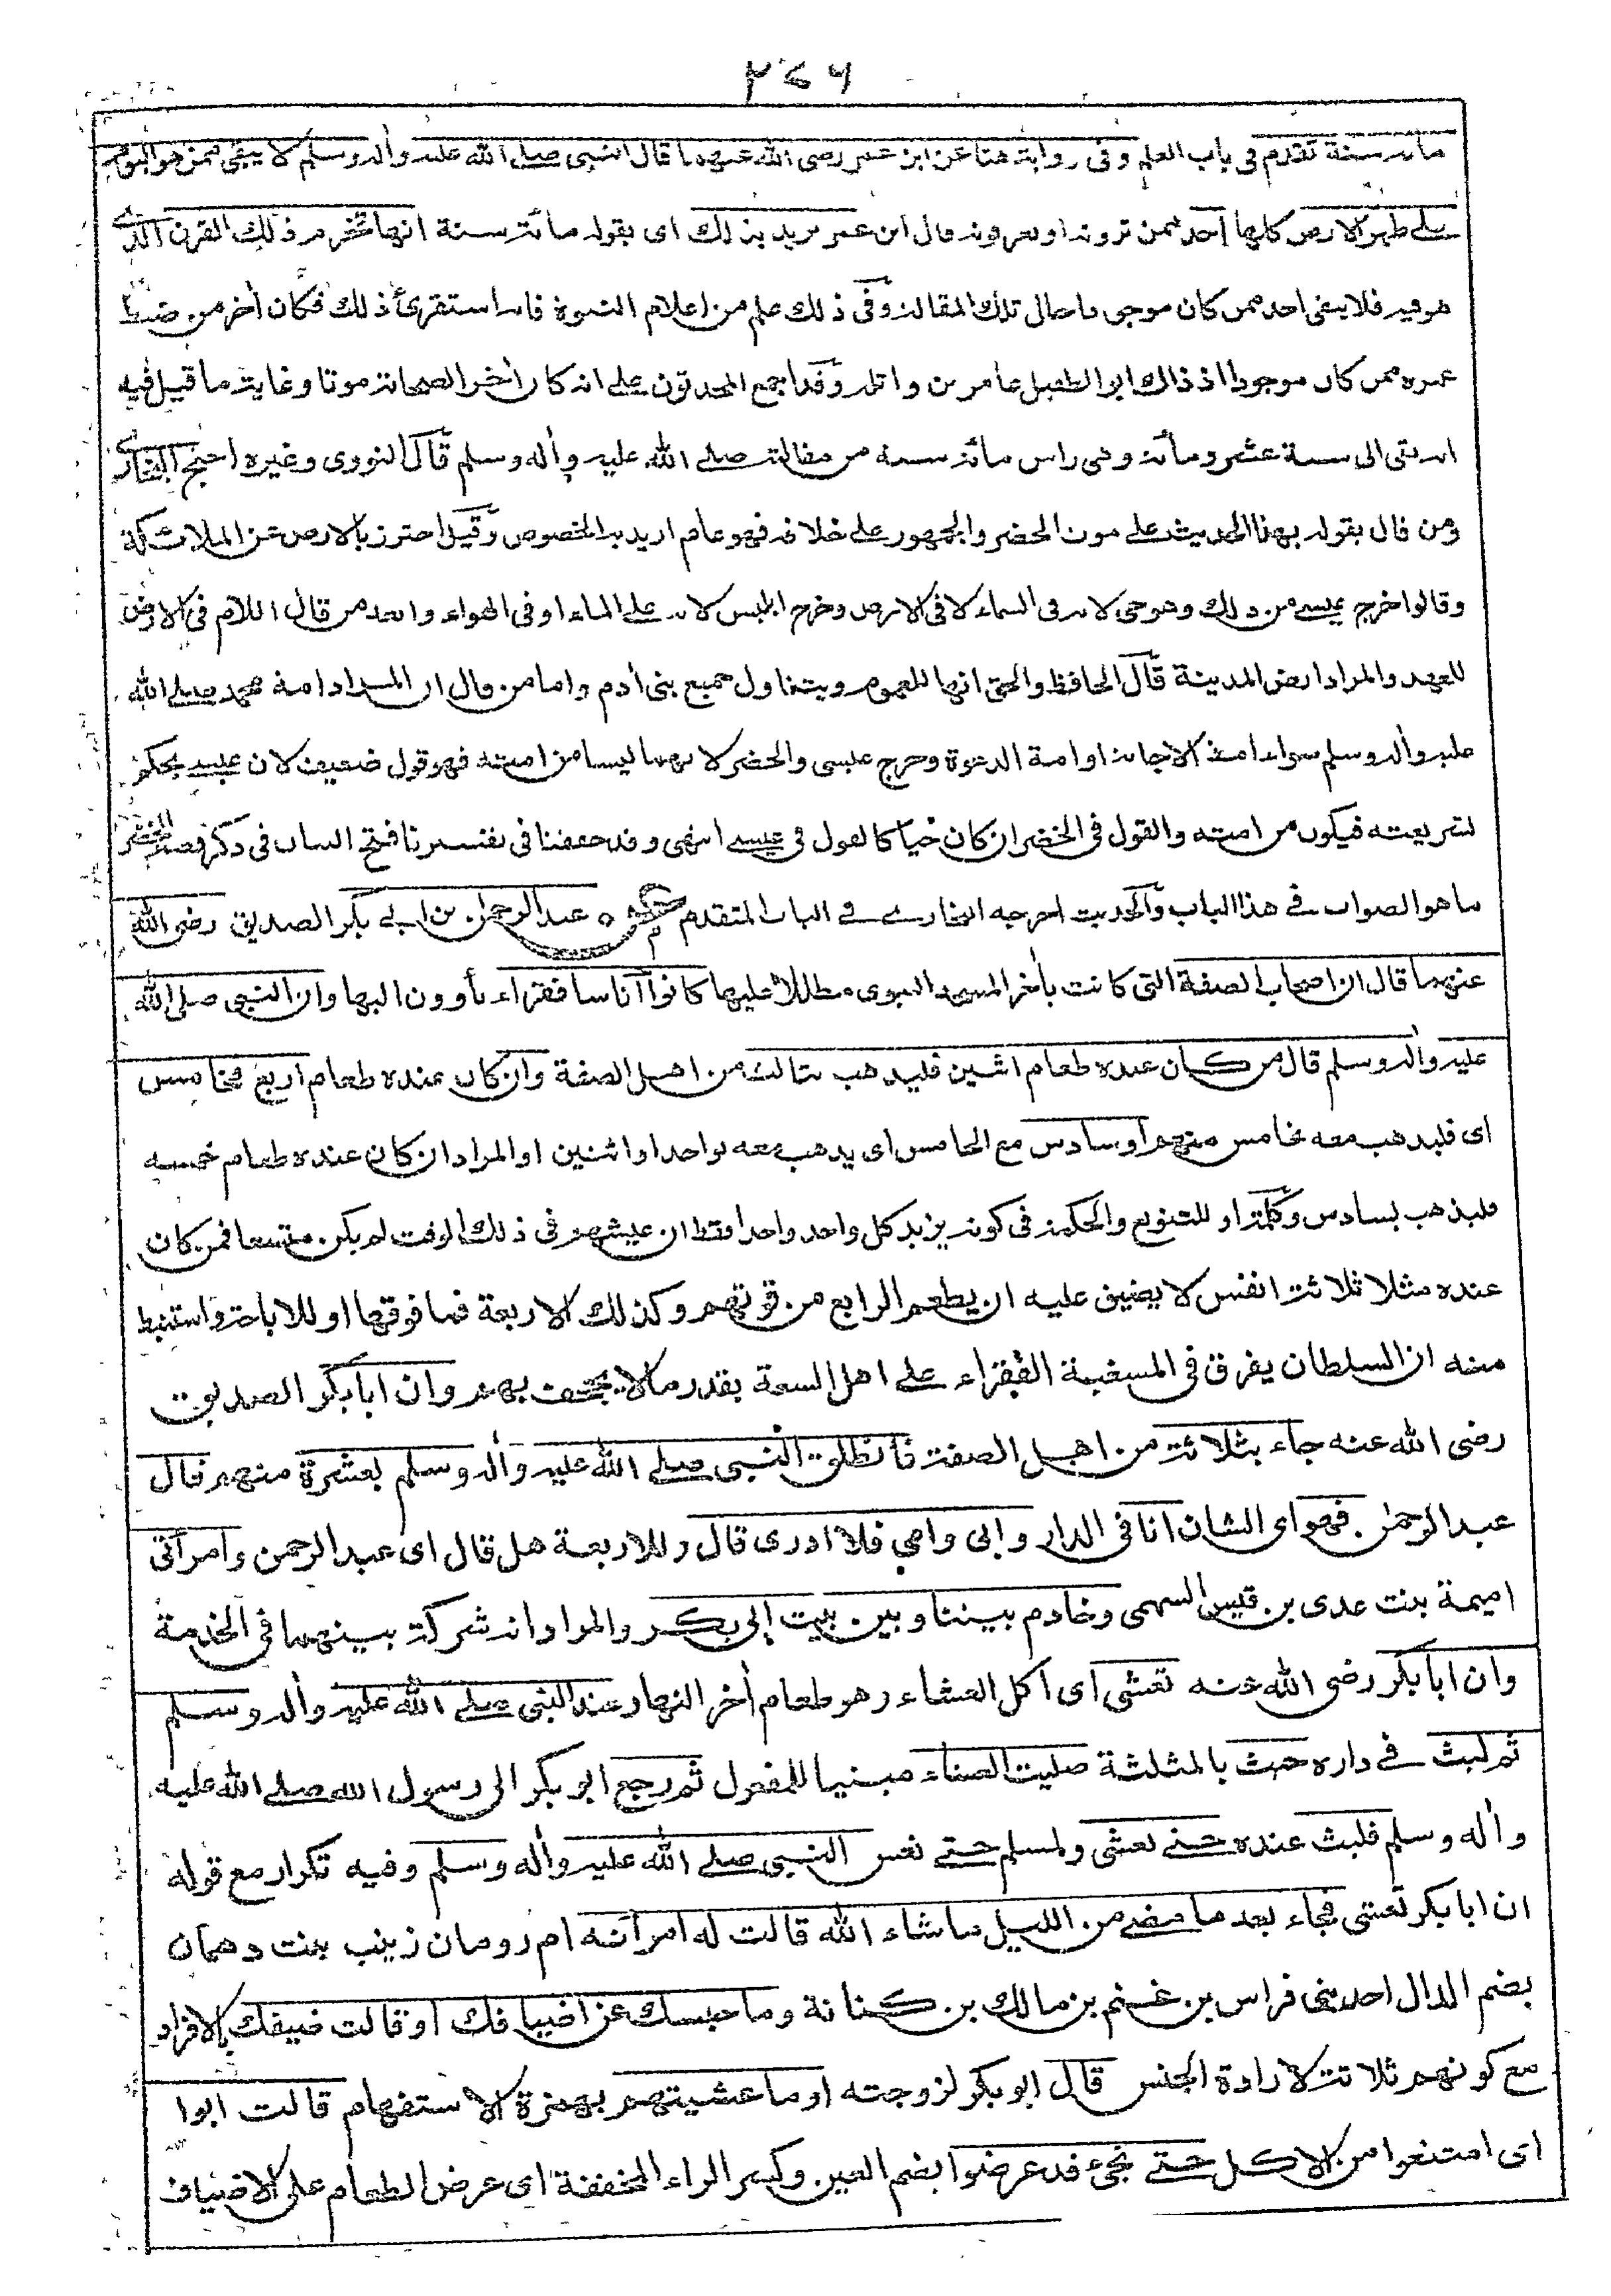 ٢٧٦
مائة سنة تقدم فى باب العلم وفى رواية هنا عن ابن عمر رضى الله عنهما قال النبى صلى الله عليه وأله وسلم لا يبقى ممن هو اليوم
على ظهر الارض كلها احد ممن ترونه او تعرفونه قال ابن عمر يريد بذلك اى بقوله مائة سنة انها تخرم ذلك القرن الذى
هو فيه فلا يبقى احد ممن كان موجودا حال تلك المقالة وفى ذلك علم من اعلام النبوة فانه استقرئ ذلك فكان أخر من ضبط
عمره ممن كان موجودا اذ ذاك ابو الطفيل عامر بن واثلة وقد اجمع المحدثون على انه كان أخر الصحابة موتا وغاية ما قيل فيه
انه بقى الى سنة عشر ومائة وهى راس مائة سنة من مقالته صلى الله عليه وأله وسلم قال النووى وغيره احتج البخارى
ومن قال بقوله بهذا الحديث على موت الخضر والجمهور على خلافه فهو عام اريد به الخصوص وقيل احترز بالارض عن الملائكة
وقالوا خرج عيسى من ذلك وهو حى لانه فى السماء لا فى الارض وخرج ابليس لانه على الماء او فى الهواء وابعد من قال اللام فى الارض
للعهد والمراد ارض المدينة قال الحافظ والحق انها للعموم ويتناول جميع بنى أدم واما من قال ان المراد امة محمد صلى الله
عليه وأله وسلم سواء امة الاجابة او امة الدعوة وخرج عيسى والخضر لانهما ليسا من امته فهو قول ضعيف لان عيسى يحكم
بشريعته فيكون من امته والقول فى الخضر ان كان حيا كالقول فى عيسى انتهى وقد حققنا فى تفسيرنا فتح البيان فى ذكر قصة الخضر
ما هو الصواب فى هذا الباب والحديث اخرجه البخارى فى الباب المتقدم ۞ عبد الرحمن بن ابى بكر الصديق رضى الله
عنهما قال ان اصحاب الصفة التى كانت بأخر المسجد النبوى مظللا عليها كانوا أناسا فقراء يأوون اليها وان النبى صلى الله
عليه وأله وسلم قال من كان عنده طعام اثنين فليذهب بثالث من اهل الصفة وان كان عنده طعام اربع فخامس
اى فليذهب معه بخامس منهم او سادس مع الخامس اى يذهب معه بواحد او اثنين او المراد ان كان عنده طعام خمسه
فليذهب بسادس وكلمة او للتنويع والحكمة فى كونه يزيد كل واحد واحدا فقط ان عيشهم فى ذلك الوقت لم يكن متسعا فمن كان
عنده مثلا ثلاثة انفس لا يضيق عليه ان يطعم الرابع من قوتهم وكذلك الاربعة فما فوقها او للاباحة واستنبط
منه ان السلطان يفرق فى المسغبة الفقراء على اهل السعة بقدر ما لا يجحف بهم وان ابا بكر الصديق
رضى الله عنه جاء بثلاثة من اهل الصفة فانطلق النبى صلى الله عليه وأله وسلم بعشرة منهم قال
عبد الرحمن فهو اى الشان انا فى الدار وابى وامى فلا ادرى قال وللاربعة هل قال اى عبد الرحمن وامرأتى
اميمة بنت عدى بن قيس السهمى وخادم بيننا وبين بيت ابى بكر والمراد انه شركة بينهما فى الخدمة
وان ابا بكر رضى الله عنه تعشى اى اكل العشاء وهو طعام أخر النهار عند النبى صلى الله عليه وأله وسلم
ثم لبث فى داره حيث بالمثلثة صليت العشاء مبنيا للمفعول ثم رجع ابو بكر الى رسول الله صلى الله عليه
وأله وسلم فلبث عنده حتى تعشى ولمسلم حتى نعس النبى صلى الله عليه وأله وسلم وفيه تكرار مع قوله
ان ابا بكر تعشى فجاء بعد ما مضى من الليل ما شاء الله قالت له امرأته ام رومان زينب بنت دهمان
بضم الدال احد بنى فراس بن غنم بن مالك بن كنانة وما حبسك عن اضيافك او قالت ضيفك بالافراد
مع كونهم ثلاثة لارادة الجنس قال ابو بكر لزوجته او ما عشيتهم بهمزة الاستفهام قالت ابوا
اى امتنعوا من الاكل حتى تجئ قد عرضوا بضم العين وكسر الراء المخففة اى عرض الطعام على الاضياف